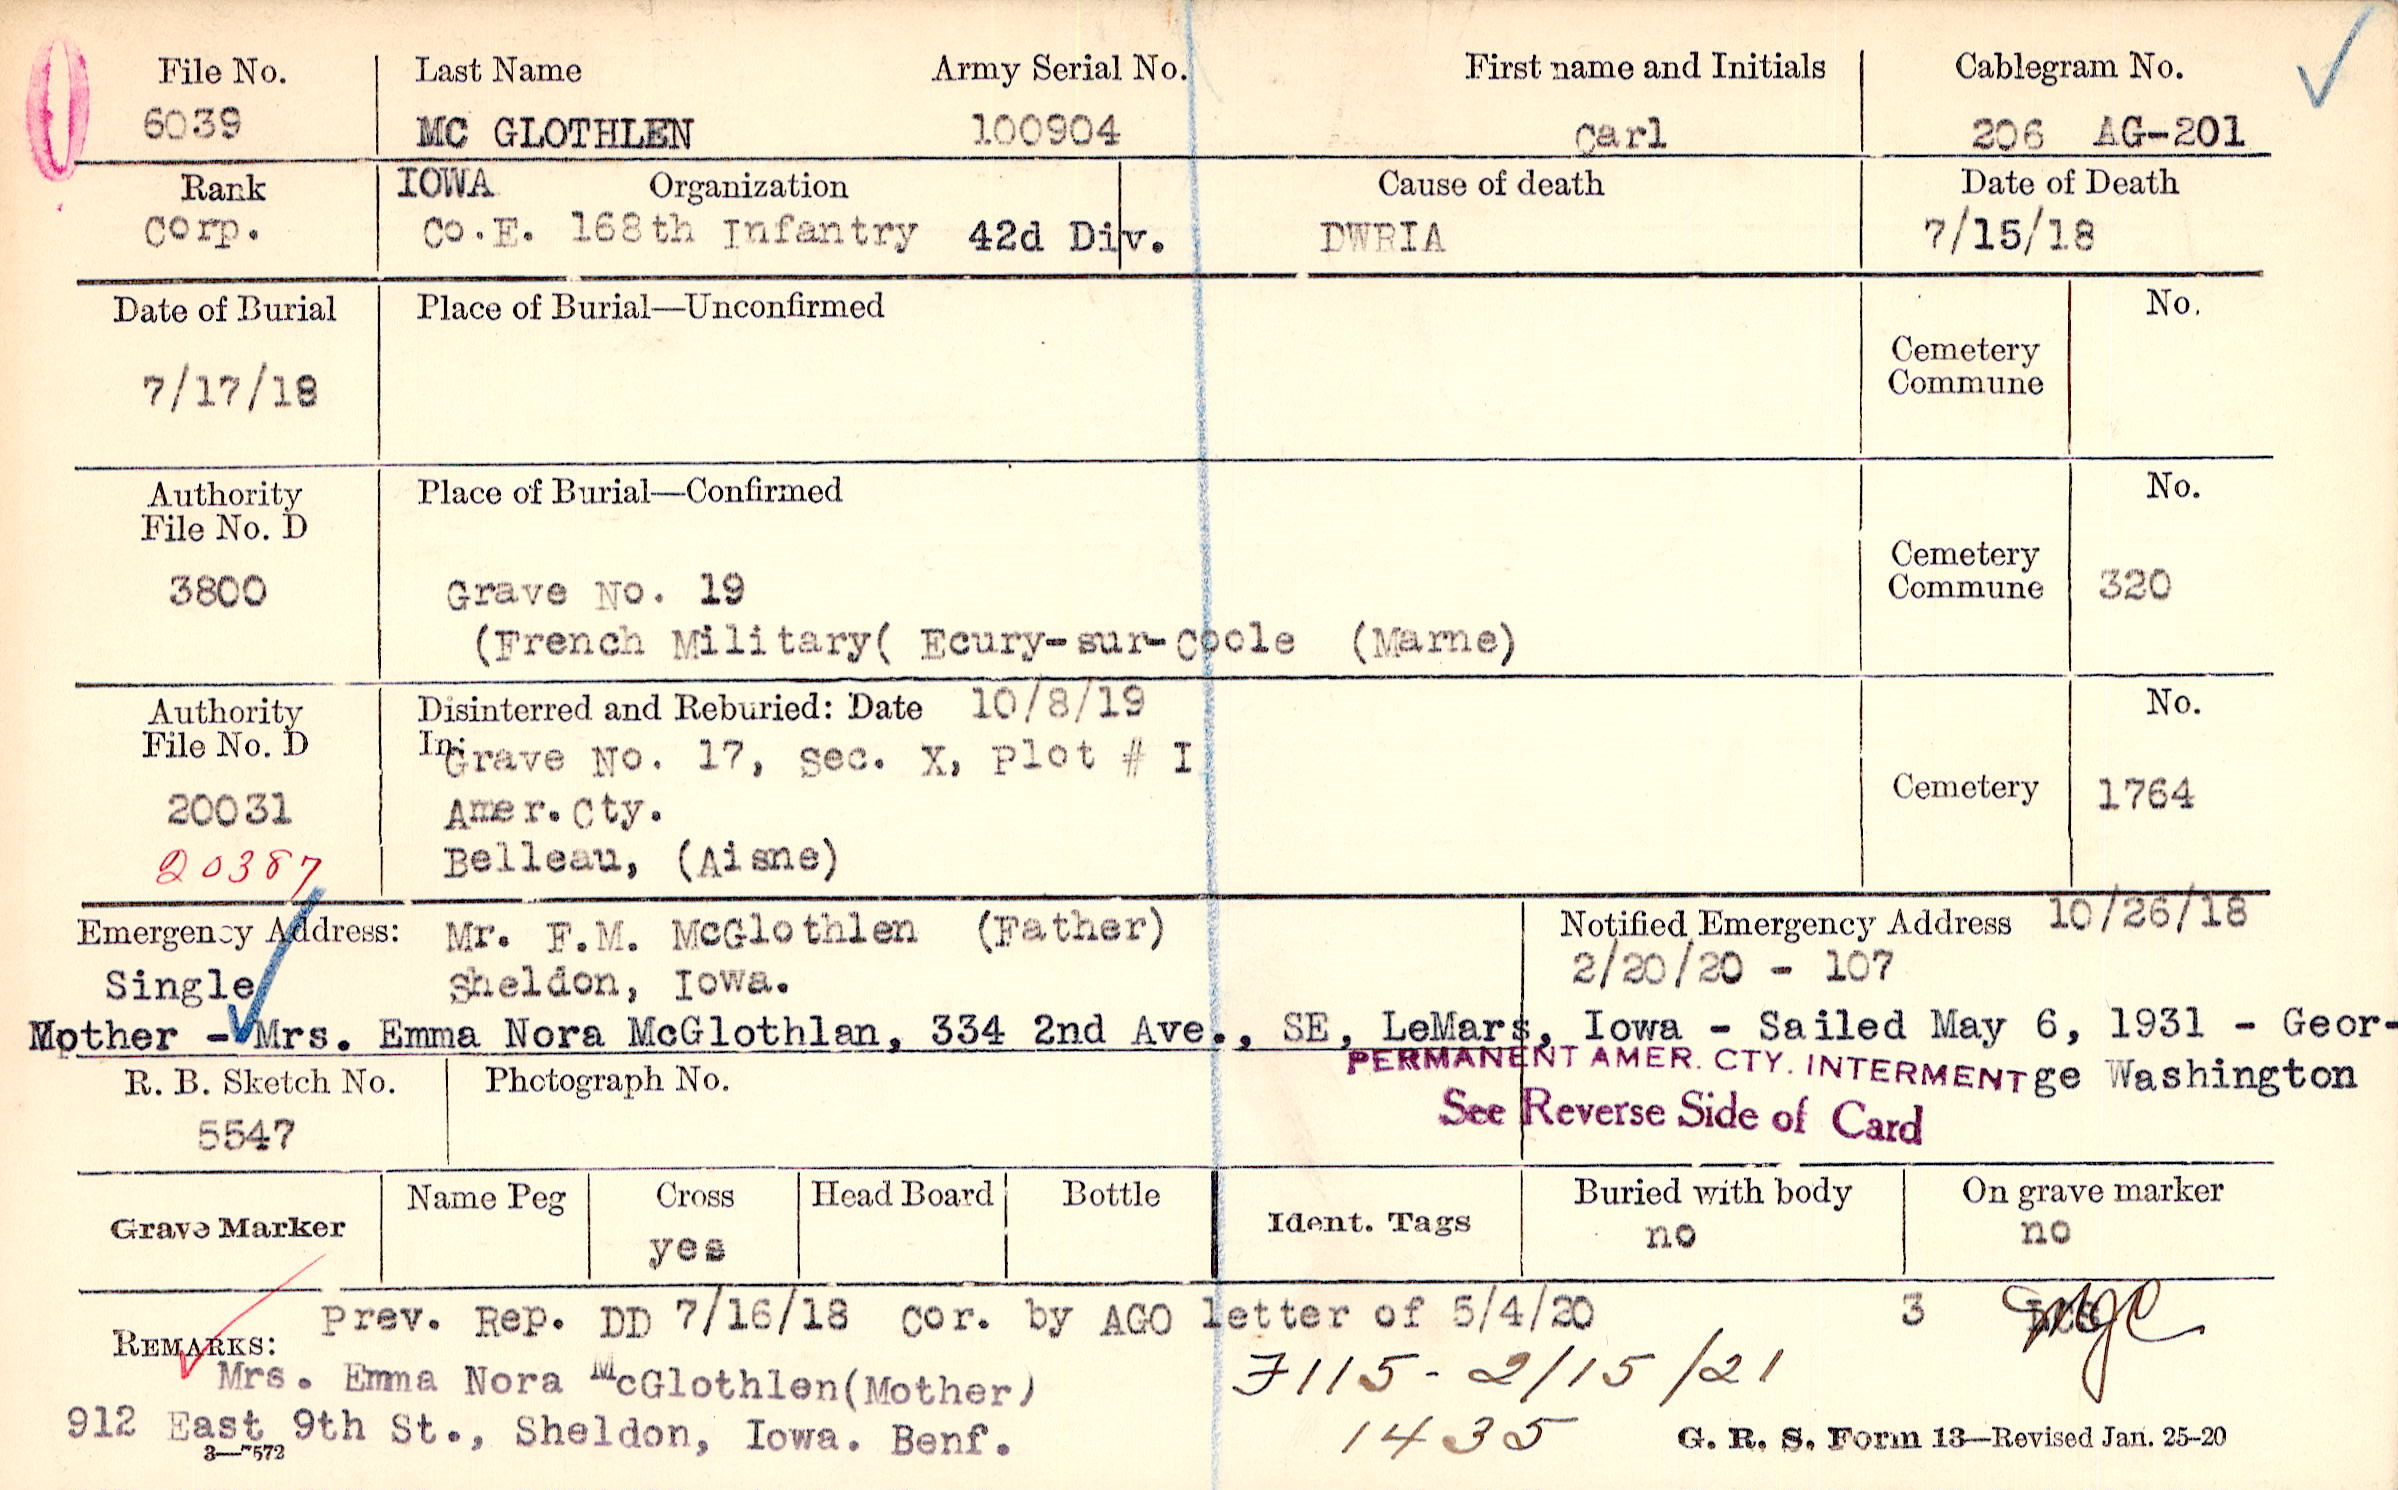 File No. Last Name Army Serial No. First name and Initials Cablegram No.
6039 MC GLOTHLEN 100904 Carl 206 AG-201
Rank IOWA Organization Cause of death Date of Death
Corp. Co.E. 168th Infantry 42d Div. DWRIA 7/15/18
Date of Burial Place of Burial—Unconfirmed No.
Cemetery
Commune
7/17/18
Authority Place of Burial—Confirmed No.
File No. D
Cemetery
3800 Grave No. 19 Commune 320
(French Military( Ecury-sur-Coole (Marne)
Authority Disinterred and Reburied: Date 10/8/19 No.
File No. D In: Grave No. 17, Sec. X, Plot # I
20031 Amer.Cty. Cemetery 1764
20387 Belleau, (Aisne)
Emergency Address: Mr. F.M. McGlothlen (Father) Notified Emergency Address 10/26/18
Single Sheldon, Iowa. 2/20/20 - 107
Mother - Mrs. Emma Nora McGlothlan, 334 2nd Ave., SE, LeMars, Iowa - Sailed May 6, 1931 - Geor-
PERMANENT AMER. CTY. INTERMENT ge Washington
R. B. Sketch No. Photograph No.
See Reverse Side of Card
5547
Grave Marker Name Peg Cross Head Board Bottle Ident. Tags Buried with body On grave marker
yes no no
Prev. Rep. DD 7/16/18 Cor. by AGO letter of 5/4/20 3
REMARKS:
Mrs. Emma Nora McGlothlen(Mother) F115 - 2/15/21
912 East 9th St., Sheldon, Iowa. Benf. 1435
3—7572 G. R. S. Form 13—Revised Jan. 25-20